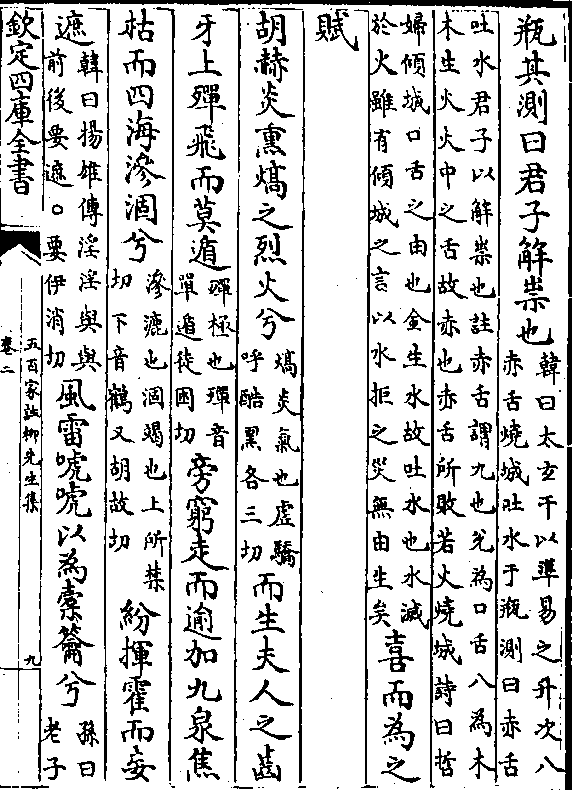 瓶其測曰君子解祟也韓曰太玄干以準易之升次八
赤舌燒城吐水于瓶測曰赤舌
吐水君子以解祟也註赤舌謂九也兌為口舌八為木
木生火火中之舌故赤也赤舌所敗若火燒城詩曰哲
婦傾城口舌之由也金生水故吐水也水滅
於火雖有傾城之言以水拒之災無由生矣喜而為之
賦
胡赫炎熏熇之烈火兮熇炎氣也虛驕
呼酷黑各三切而生夫人之齒
牙上殫飛而莫遁殫極也殫音
單遁徒困切旁窮走而逾加九泉焦
枯而四海滲涸兮滲漉也涸竭也上所禁
切下音鶴又胡故切紛揮霍而妄
遮韓曰揚雄傳淫淫與與
前後要遮○要伊消切風雷唬唬以為橐籥兮孫曰
老子
欽定四庫全書
五百家註柳先生集
卷二
九